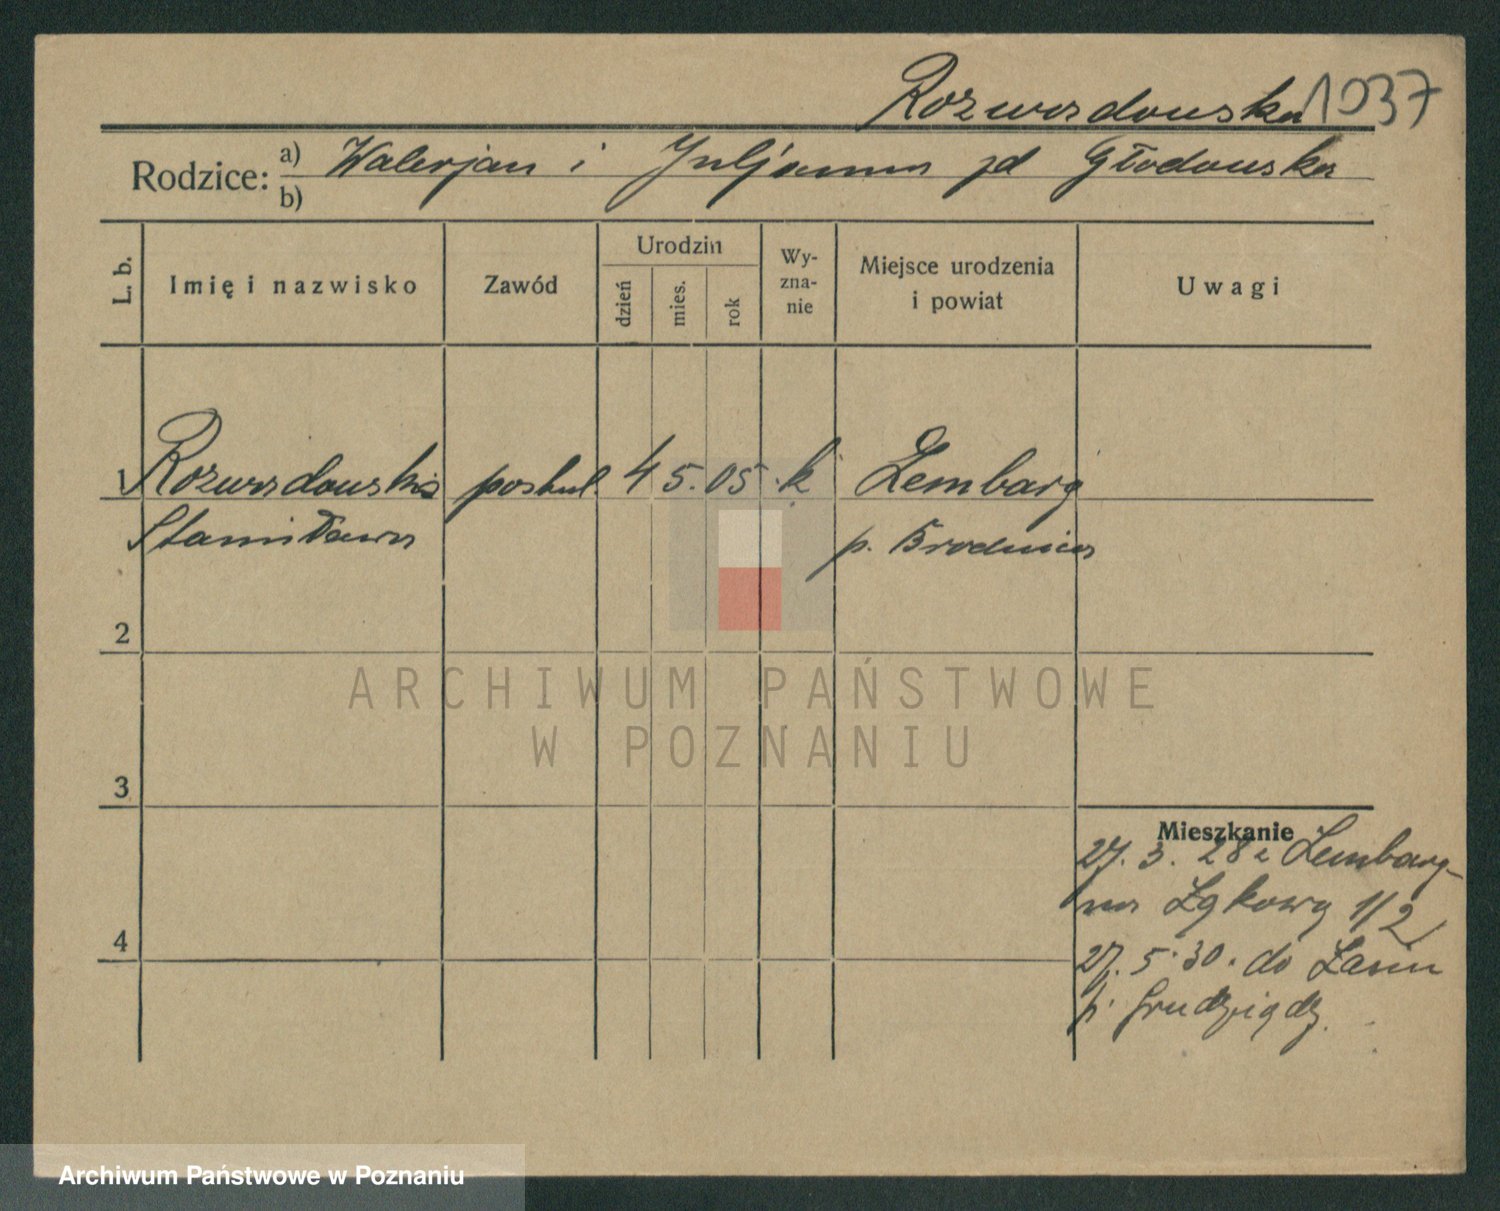 Rozwadowska 1037
Rodzice: a) Walerjan i Juljanna zd Głodowska
b)
L. b.
Imię i nazwisko
Zawód
Urodzin
dzień
mies.
rok
Wy-
zna-
nie
Miejsce urodzenia
i powiat
Uwagi
1 Rozwadowska postul. 4 5. 05 k Lembarg
Stanisława p. Brodnica
2
3
4
Mieszkanie
27. 3. 28 z Lembarg
na Łąkową 1/2
27. 5. 30. do Łasin
p. Grudziądz.
ARCHIWUM PAŃSTWOWE
W POZNANIU
Archiwum Państwowe w Poznaniu